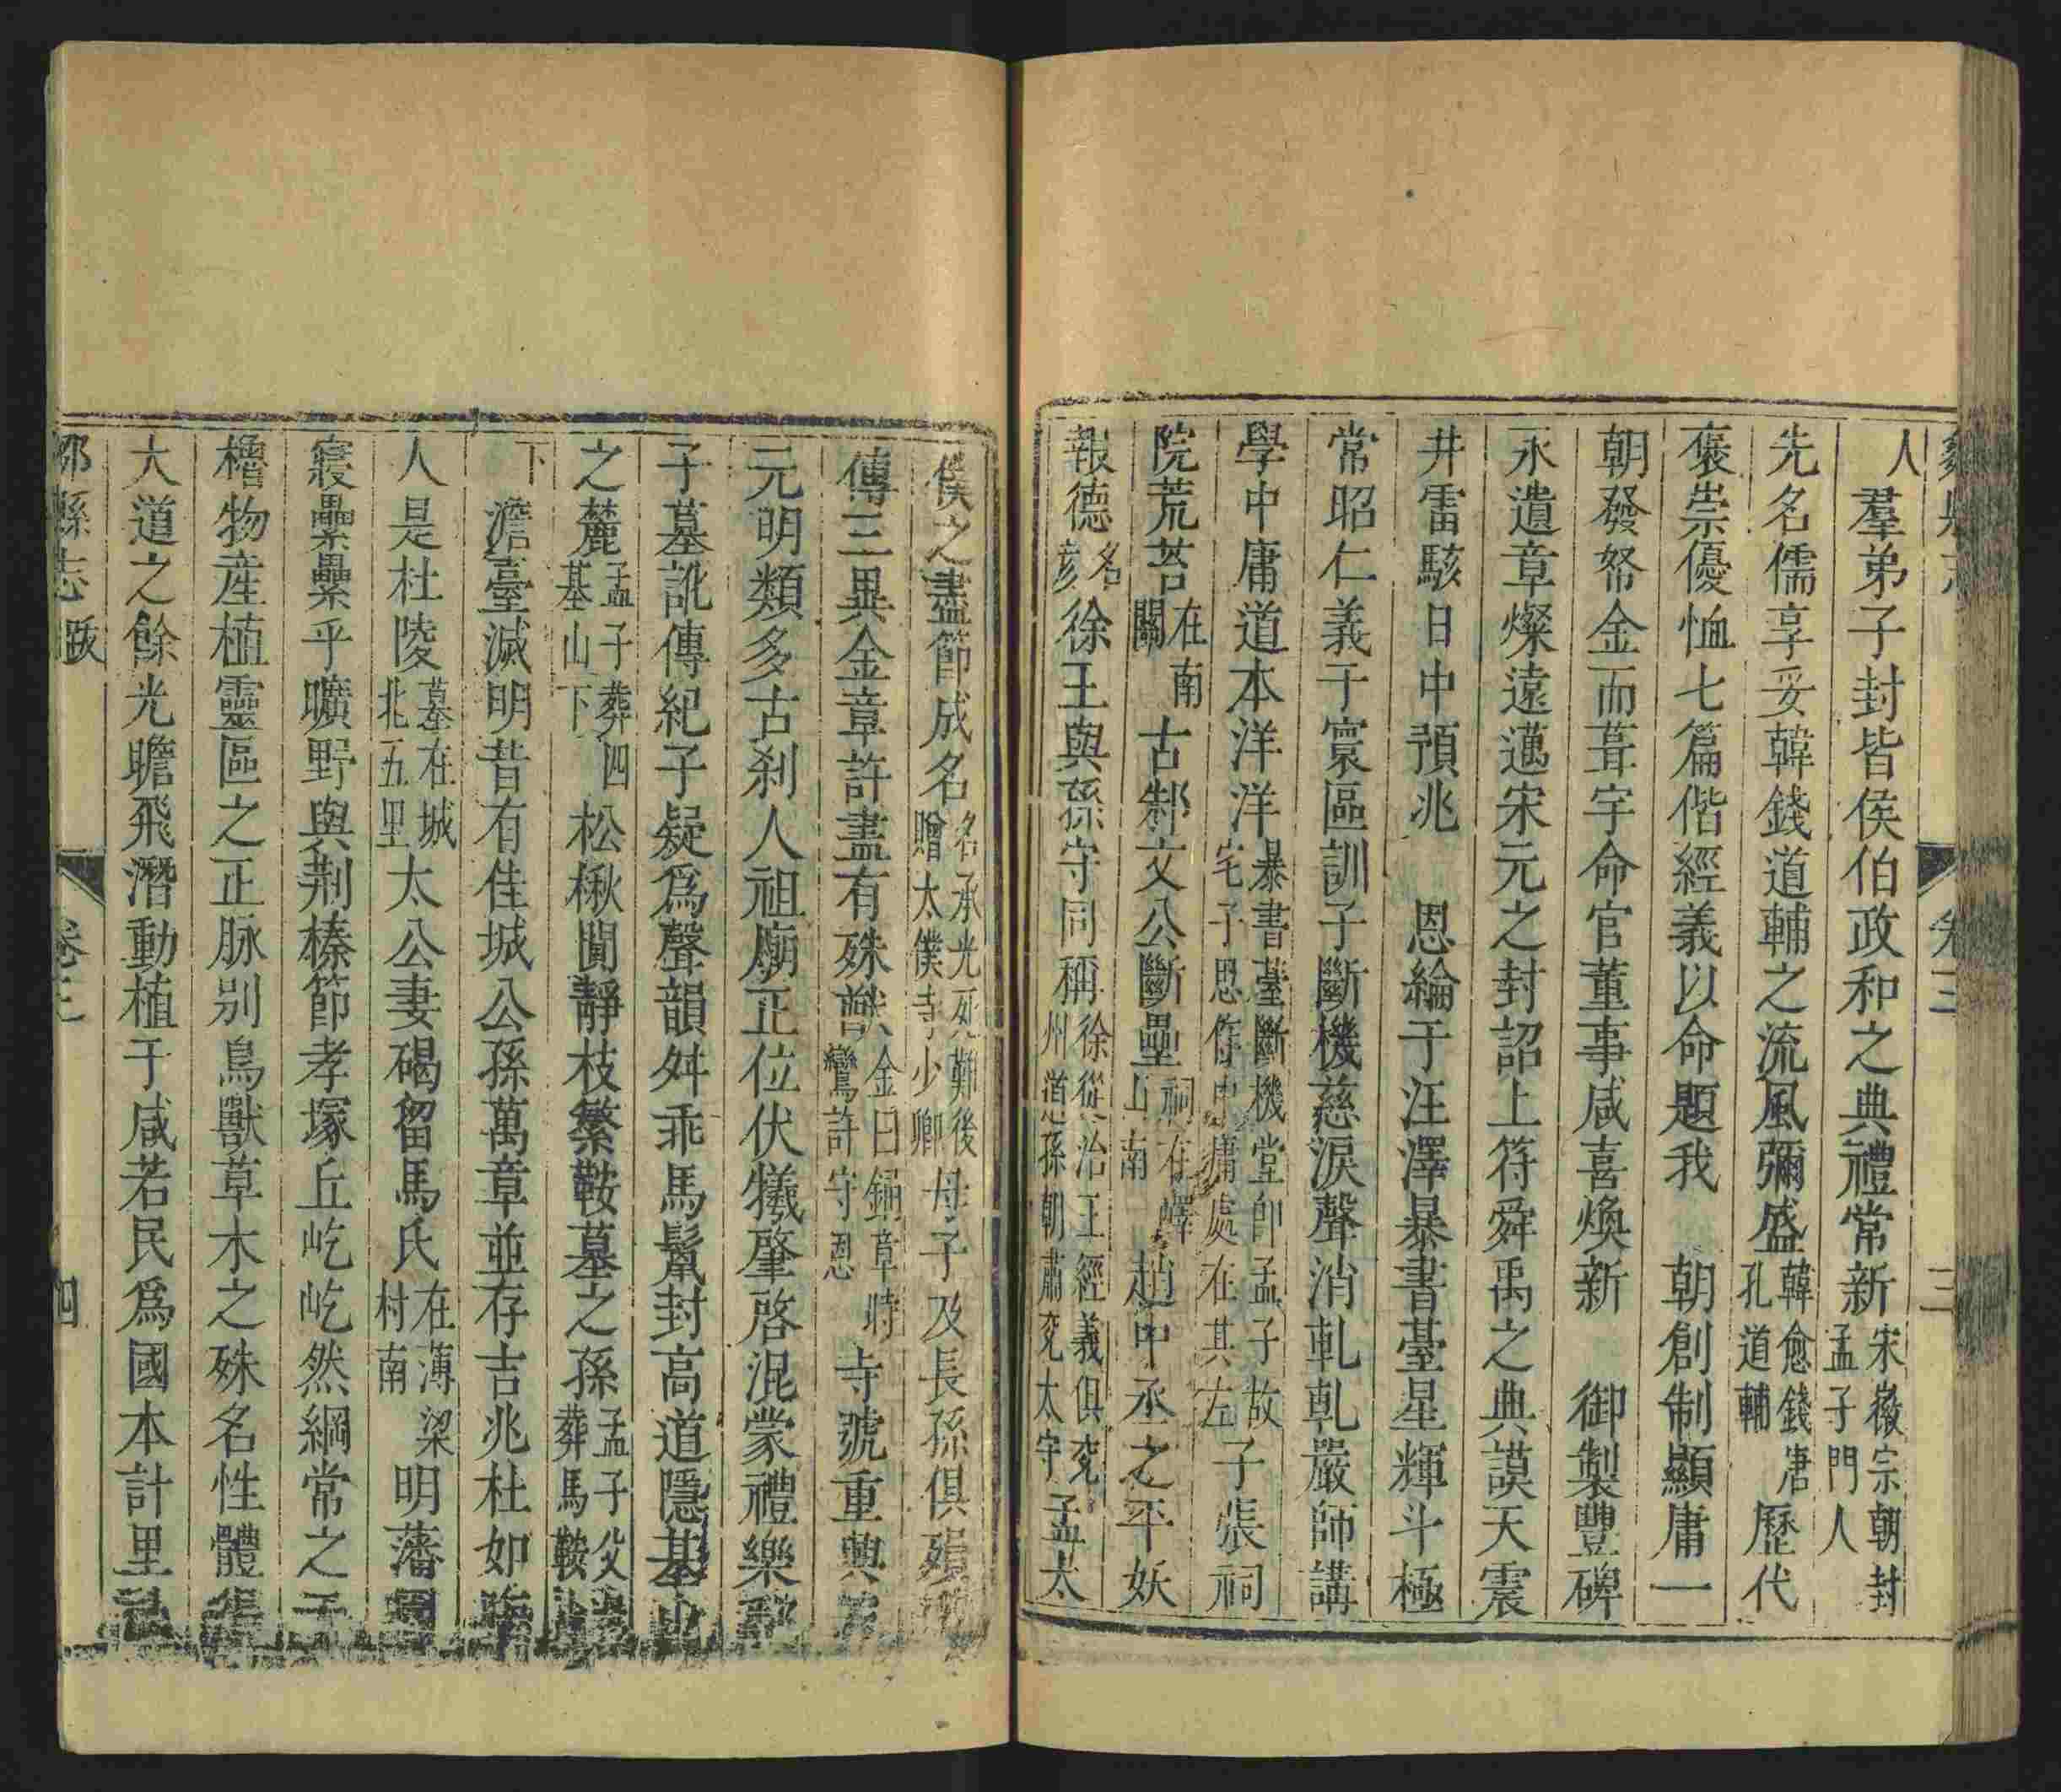 卷三 三
人羣弟子封皆侯伯政和之典禮常新宋徽宗朝封孟子門人
先名儒享妥韓錢道輔之流風彌盛韓愈錢唐孔道輔歷代
褒崇優恤七篇偕經義以命題我 朝創制顯庸一
朝發帑金而葺宇命官董事咸喜煥新 御製豐碑
永遺章燦遠邁宋元之封詔上符舜禹之典謨天震
井雷駭日中預兆 恩綸于汪澤暴書臺星輝斗極
常昭仁義于寰區訓子斷機慈淚聲消軋軋嚴師講
學中庸道本洋洋暴書臺斷機堂卽孟子故宅子思作中庸處在其左子張祠
院荒苔在南關古邾文公斷壘祠在嶧山南趙中丞之平妖
報德名彥徐王與孫守同稱徐從治王經義俱兗州道孫朝肅兗太守孟太
僕之盡節成名名承光死難後贈太僕寺少卿母子及長孫俱殞
傳三異金章許盡有殊勳金曰鍾章時鸞許守恩寺號重興
元明類多古刹人祖廟正位伏犧肇啓混蒙禮樂
子墓訛傳紀子疑爲聲韻舛乖馬鬣封高道隱基山
之麓孟子葬四基山下松楸閴靜枝繁鞍墓之孫孟子父葬馬鞍
下澹臺滅明昔有佳城公孫萬章並存吉兆杜如晦
人是杜陵墓在城北五里太公妻碣留馬氏在薄梁村南明藩
寢纍纍乎曠野與荆榛節孝塚丘屹屹然綱常之干
櫓物産植靈區之正脉别鳥獸草木之殊名性體
大道之餘光瞻飛潛動植于咸若民爲國本計里
鄒縣志 卷三 四